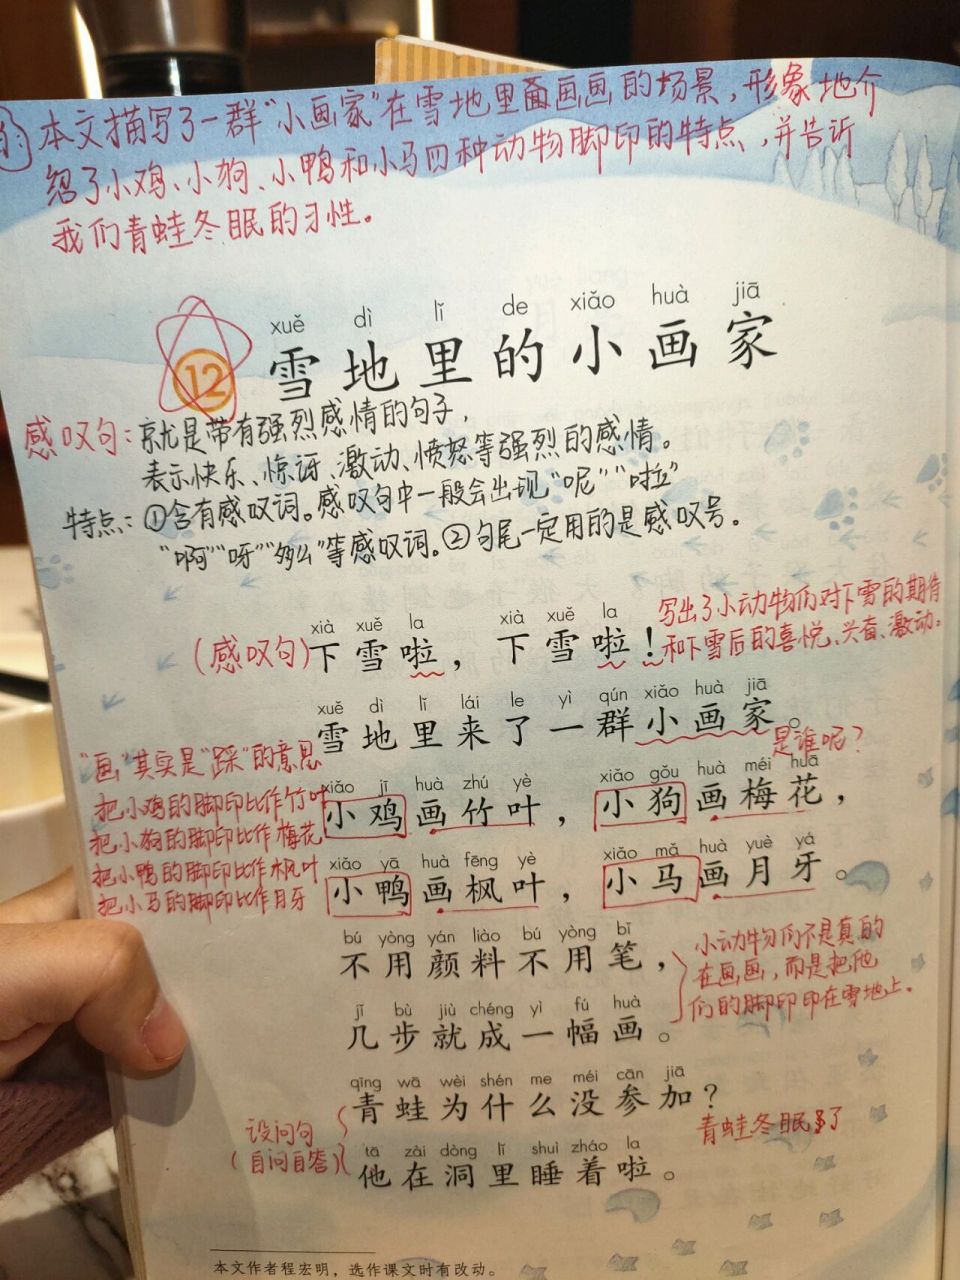 的 本文描写了一群"小画家"在雪地里画画的场景，形象地介
绍了小鸡、小狗、小鸭和小马四种动物脚印的特点，并告诉
我们青蛙冬眠的习性。
xuě dì lǐ de xiǎo huà jiā
12 雪地里的小画家
感叹句：就是带有强烈感情的句子，
表示快乐、惊讶、激动、愤怒等强烈的感情。
特点：①含有感叹词。感叹句中一般会出现"呢""啦"
"啊""呀""多么"等感叹词。②句尾一定用的是感叹号。
xià xuě la xià xuě la
（感叹句）下雪啦，下雪啦！
写出了小动物们对下雪的期待
和下雪后的喜悦、兴奋、激动。
xuě dì lǐ lái le yì qún xiǎo huà jiā
雪地里来了一群小画家。
是谁呢？
"画"其实是"踩"的意思
把小鸡的脚印比作竹叶
把小狗的脚印比作梅花
把小鸭的脚印比作枫叶
把小马的脚印比作月牙
xiǎo jī huà zhú yè xiǎo gǒu huà méi huā
小鸡画竹叶，小狗画梅花，
xiǎo yā huà fēng yè xiǎo mǎ huà yuè yá
小鸭画枫叶，小马画月牙。
bú yòng yán liào bú yòng bǐ
不用颜料不用笔，
jǐ bù jiù chéng yì fú huà
几步就成一幅画。
小动物们不是真的
在画画，而是把他
们的脚印印在雪地上。
qīng wā wèi shén me méi cān jiā
青蛙为什么没参加？
青蛙冬眠了
设问句
（自问自答）
tā zài dòng lǐ shuì zháo la
他在洞里睡着啦。
本文作者程宏明，选作课文时有改动。